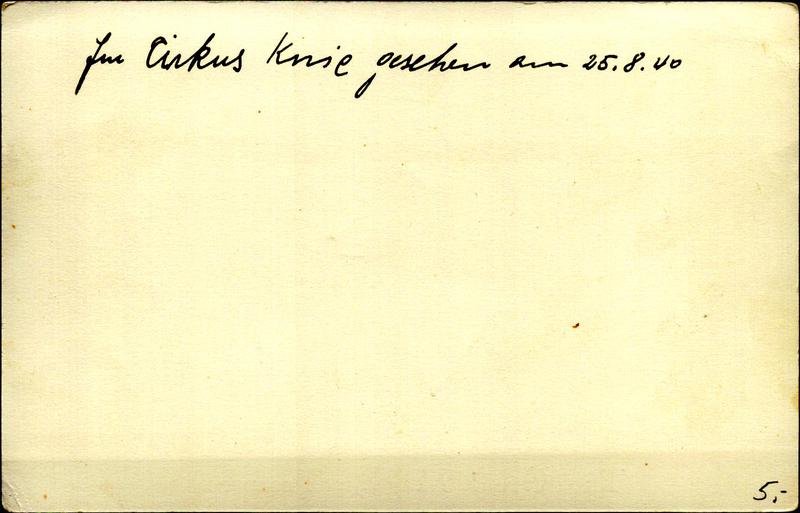 Im Cirkus Knie gesehen am 25.8.40
5,-